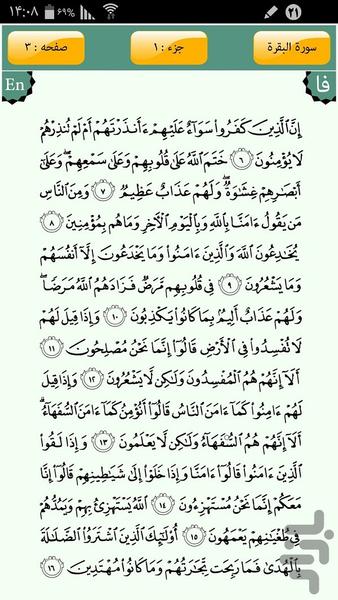 ۱۴:۰۸ ۶۹% ۲۱
صفحه : ۳ جزء : ۱ سورة البقرة
En فا
إِنَّ ٱلَّذِينَ كَفَرُوا۟ سَوَآءٌ عَلَيْهِمْ ءَأَنذَرْتَهُمْ أَمْ لَمْ تُنذِرْهُمْ
لَا يُؤْمِنُونَ ۝٦ خَتَمَ ٱللَّهُ عَلَىٰ قُلُوبِهِمْ وَعَلَىٰ سَمْعِهِمْ ۖ وَعَلَىٰٓ
أَبْصَٰرِهِمْ غِشَٰوَةٌ ۖ وَلَهُمْ عَذَابٌ عَظِيمٌ ۝٧ وَمِنَ ٱلنَّاسِ
مَن يَقُولُ ءَامَنَّا بِٱللَّهِ وَبِٱلْيَوْمِ ٱلْـَٔاخِرِ وَمَا هُم بِمُؤْمِنِينَ ۝٨
يُخَٰدِعُونَ ٱللَّهَ وَٱلَّذِينَ ءَامَنُوا۟ وَمَا يَخْدَعُونَ إِلَّآ أَنفُسَهُمْ
وَمَا يَشْعُرُونَ ۝٩ فِى قُلُوبِهِم مَّرَضٌ فَزَادَهُمُ ٱللَّهُ مَرَضًا ۖ
وَلَهُمْ عَذَابٌ أَلِيمٌۢ بِمَا كَانُوا۟ يَكْذِبُونَ ۝١٠ وَإِذَا قِيلَ لَهُمْ
لَا تُفْسِدُوا۟ فِى ٱلْأَرْضِ قَالُوٓا۟ إِنَّمَا نَحْنُ مُصْلِحُونَ ۝١١
أَلَآ إِنَّهُمْ هُمُ ٱلْمُفْسِدُونَ وَلَٰكِن لَّا يَشْعُرُونَ ۝١٢ وَإِذَا قِيلَ
لَهُمْ ءَامِنُوا۟ كَمَآ ءَامَنَ ٱلنَّاسُ قَالُوٓا۟ أَنُؤْمِنُ كَمَآ ءَامَنَ ٱلسُّفَهَآءُ ۗ
أَلَآ إِنَّهُمْ هُمُ ٱلسُّفَهَآءُ وَلَٰكِن لَّا يَعْلَمُونَ ۝١٣ وَإِذَا لَقُوا۟
ٱلَّذِينَ ءَامَنُوا۟ قَالُوٓا۟ ءَامَنَّا وَإِذَا خَلَوْا۟ إِلَىٰ شَيَٰطِينِهِمْ قَالُوٓا۟ إِنَّا
مَعَكُمْ إِنَّمَا نَحْنُ مُسْتَهْزِءُونَ ۝١٤ ٱللَّهُ يَسْتَهْزِئُ بِهِمْ وَيَمُدُّهُمْ
فِى طُغْيَٰنِهِمْ يَعْمَهُونَ ۝١٥ أُو۟لَٰٓئِكَ ٱلَّذِينَ ٱشْتَرَوُا۟ ٱلضَّلَٰلَةَ
بِٱلْهُدَىٰ فَمَا رَبِحَت تِّجَٰرَتُهُمْ وَمَا كَانُوا۟ مُهْتَدِينَ ۝١٦
بازار